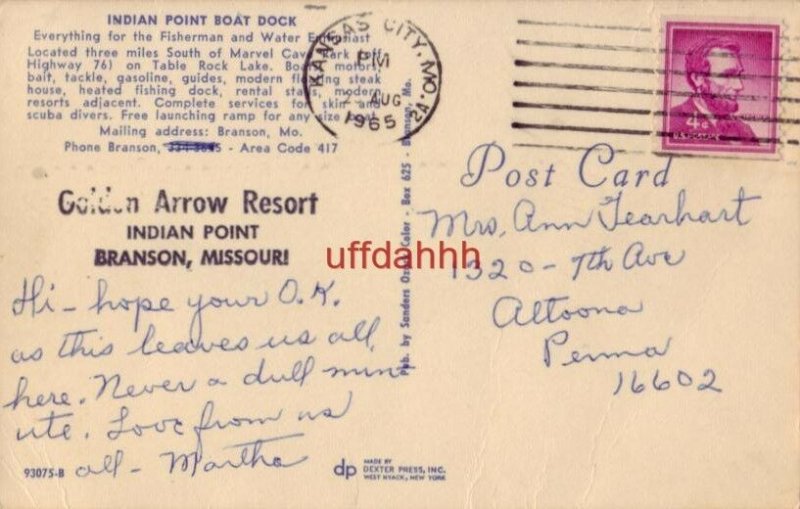 INDIAN POINT BOAT DOCK
Everything for the Fisherman and Water Enthusiast
Located three miles South of Marvel Cave Park (off
Highway 76) on Table Rock Lake. Boats, motors,
bait, tackle, gasoline, guides, modern floating steak
house, heated fishing dock, rental stalls, modern
resorts adjacent. Complete services for skin and
scuba divers. Free launching ramp for any size boat.
Mailing address: Branson, Mo.
Phone Branson, - Area Code 417
Golden Arrow Resort
INDIAN POINT
BRANSON, MISSOURI
Hi - hope your O.K.
as this leaves us all
here. Never a dull min
ute. Love from us
all - Martha
93075-B
dp
MADE BY
DEXTER PRESS, INC.
WEST NYACK, NEW YORK
Pub. by Sanders Color - Box 625 - Branson, Mo.
KANSAS CITY, MO. 2A
PM
AUG
1965
4¢
U.S. POSTAGE
Post Card
Mrs. Ann Fearhart
1320 - 7th Ave
Altoona
Penna
16602
uffdahhh